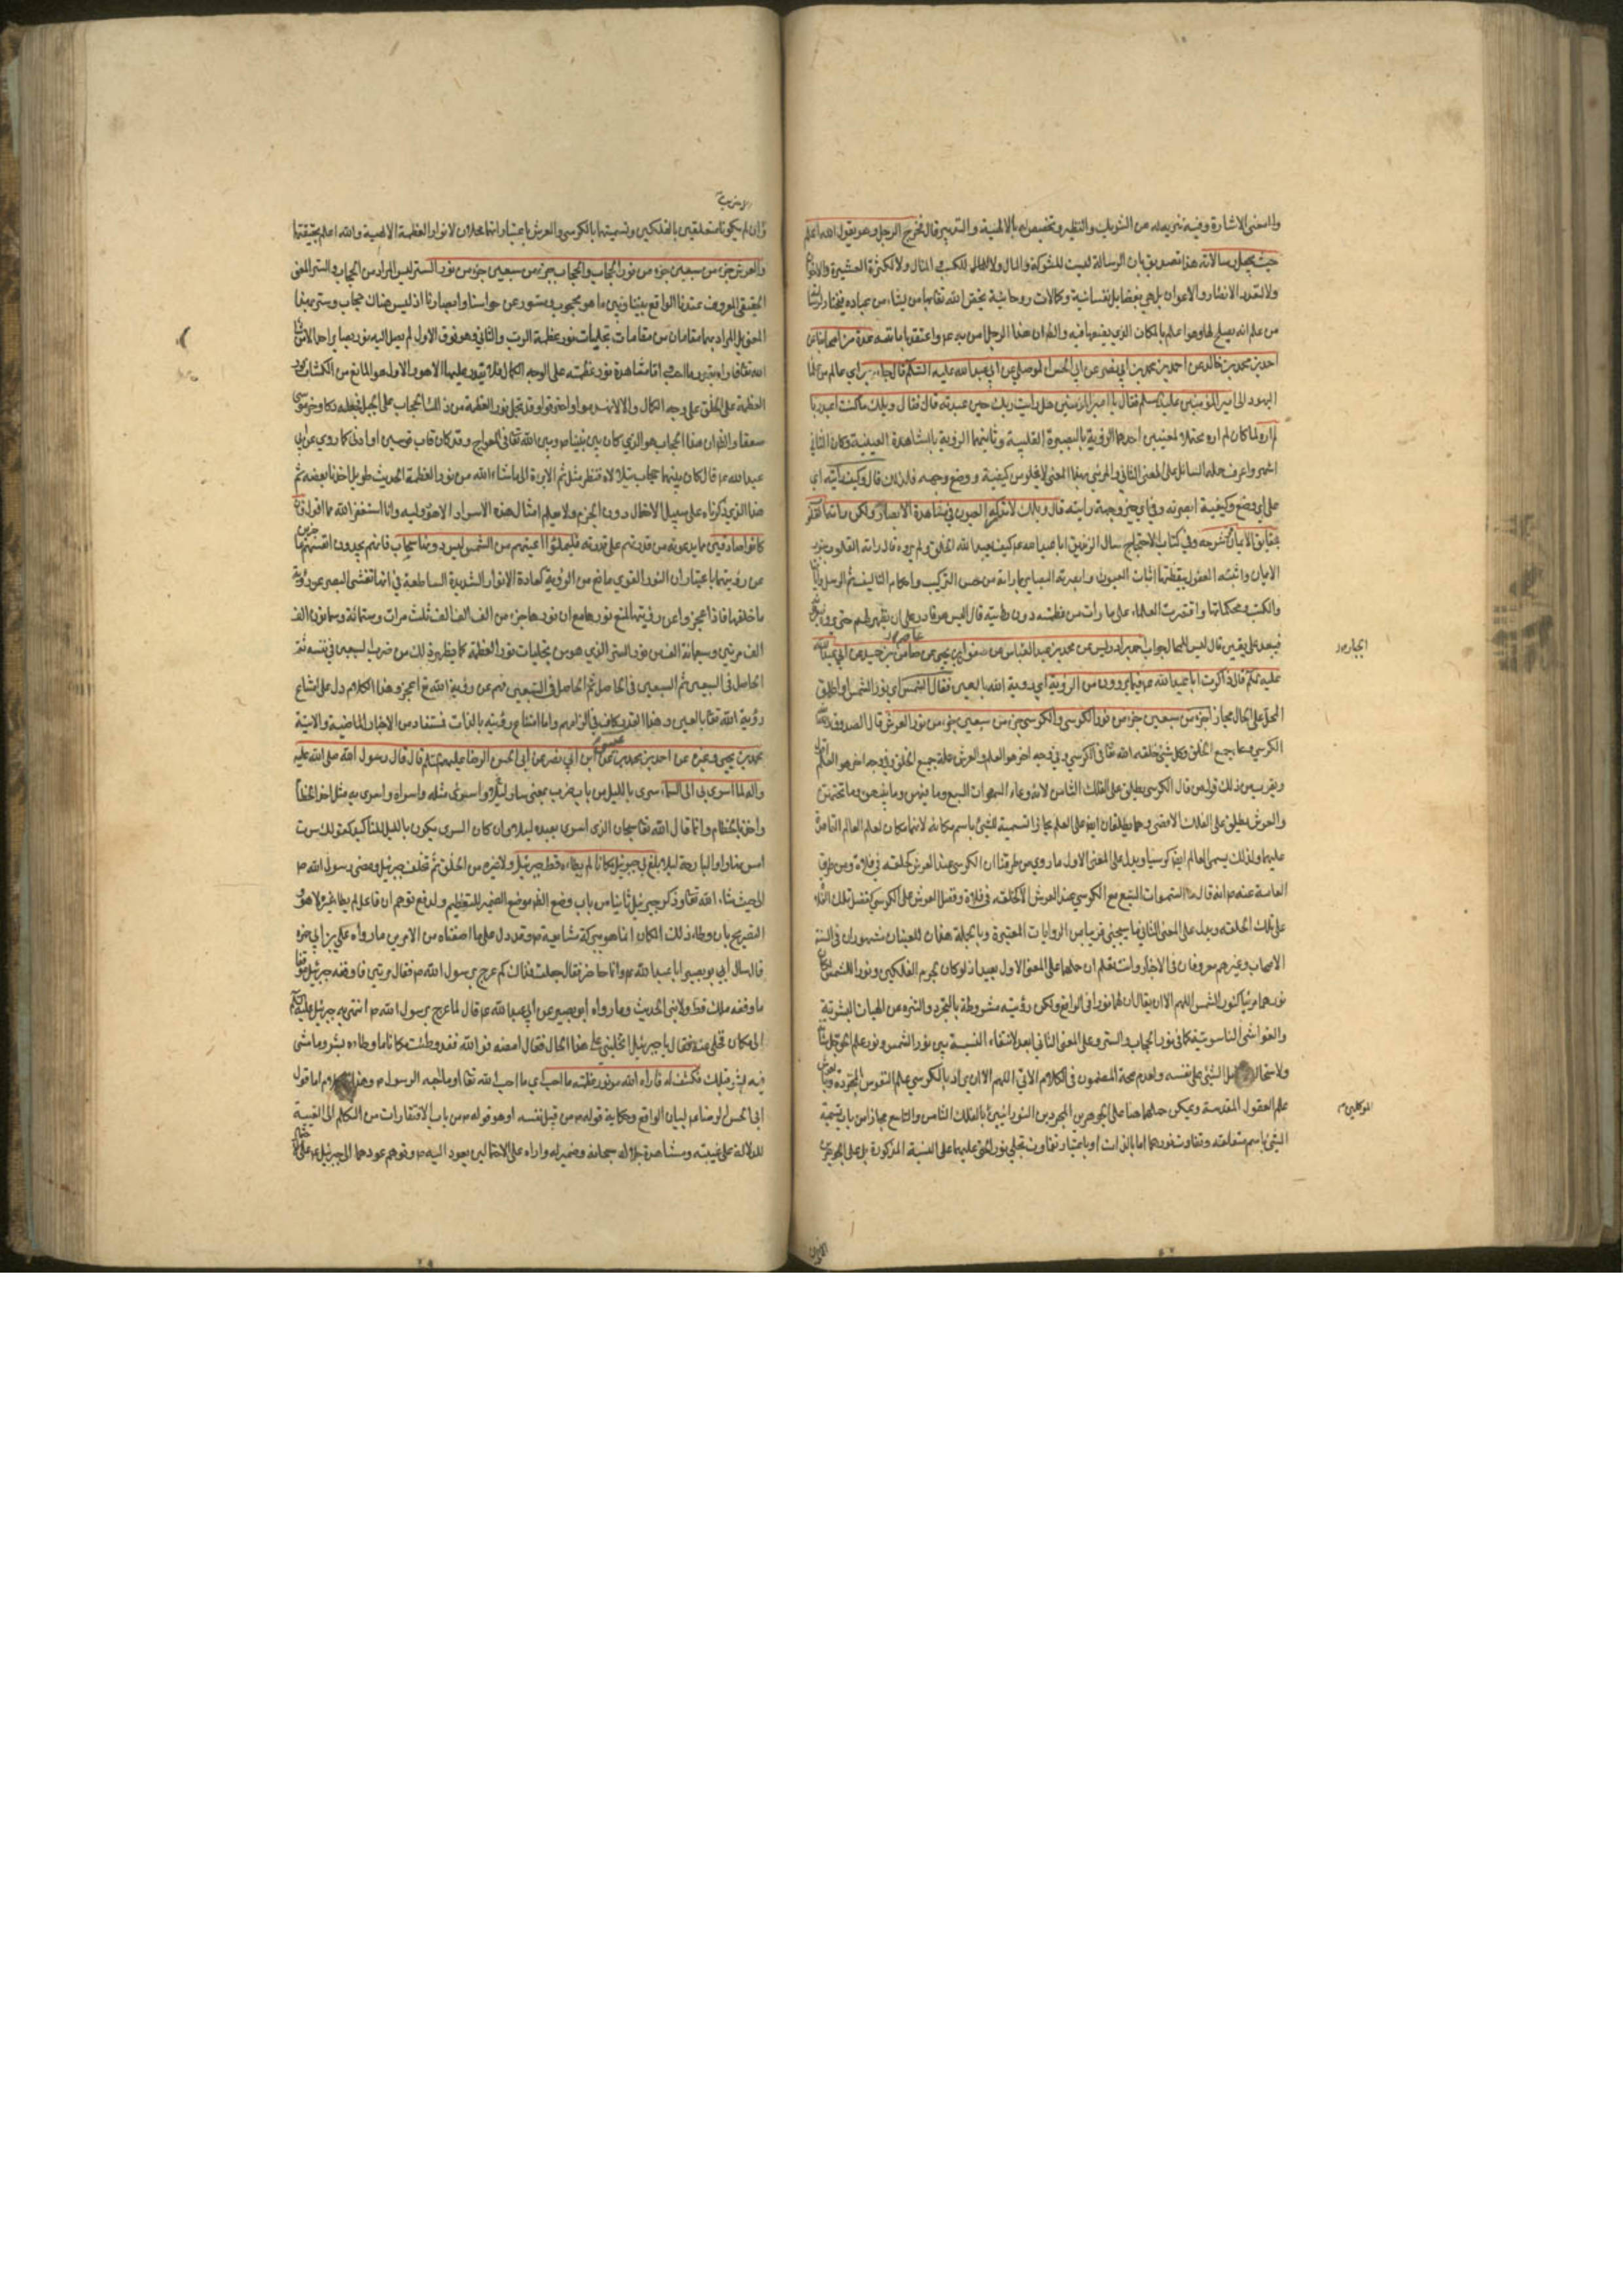 والمعنى الاشارة وفيه تنزيه له عن الشريك والنظير وتخصيص له بالالهية والتدبير قال فخرج الرجل وهو يقول الله اعلم
حيث يجعل رسالاته هذا تصديق بان الرسالة ليست للشوكة والمال ولا ولا لكثرة العشيرة
ولا لتعدد الانصار والاعوان بل هي بفضايل نفسانية وكمالات روحانية يختص الله تعالى بها من يشاء من عباده
من علم انه يصلح لها وهو اعلم بالمكان الذي يضعها فيه والظاهر ان هذا الرجل امن به واعتقد عدة من اصحابنا عن
احمد بن محمد بن خالد عن احمد بن محمد بن ابي نصر عن ابي الحسن الموصلي عن ابي عبد الله عليه السلم قال جاء حبر اي عالم من
اليهود الى امير المؤمنين عليه السلم فقال يا امير المؤمنين هل رايت ربك حين عبدته قال فقال ويلك ما كنت اعبد ربا
لم اره لما كان لم اره محتملا لمعنيين احدهما الرؤية بالبصيرة القلبية وثانيهما الرؤية بالمشاهدة العينية وكان الثاني
اشهر واعرف حمله السائل على المعنى الثاني والمرئي بهذا المعنى لا يخلو من كيفية ووضع وجهة فلذلك قال وكيف رايته اي
على اي وضع وكيفية ابصرته وفي اي حيز وجهة رايته قال ويلك لا تدركه العيون في مشاهدة الابصار ولكن راته القلوب
بحقايق الايمان شرحه وفي كتاب الاحتجاج سال الزنديق ابا عبد الله كيف يعبد الله الخلق ولم يروه قال راته القلوب بنور
الايمان واثبتته العقول بيقظتها اثبات العيون وابصرته الابصار بما راته من حسن التركيب واحكام التاليف ثم الرسل واياتها
والكتب ومحكماتها واقتصرت العلماء على ما رات من عظمته دون رؤيته قال اليس هو قادر على ان يظهر لهم حتى يروه
فيعبد على يقين قال ليس للمحال جواب احمد بن ادريس عن محمد بن عبد الجبار عن صفوان بن يحيى عن عاصم بن حميد عن ابي عبد الله
عليه السلم قال ذاكرت ابا عبد الله فيما يروون من الرؤية اي رؤية الله بالعين فقال الشمس اي نور الشمس او اطلاق
المحل على الحال مجاز جزء من سبعين جزء من نور الكرسي والكرسي جزء من سبعين جزء من نور العرش قال الصدوق
الكرسي وعاء جميع الخلق وكل شيء خلقه الله تعالى في الكرسي وفي وجه اخر هو العلم والعرش حملة جميع الخلق وفي وجه اخر هو العلم
ويقرب من ذلك قول من قال الكرسي يطلق على الفلك الثامن لانه وعاء السموات السبع وما فيهن وما بينهن وما تحتهن
والعرش يطلق على الفلك الاقصى وهما يطلقان ايضا على العلم مجازا تسمية للشيء باسم مكانه لانهما مكان لعلم العالم
عليهما ولذلك يسمى العالم ايضا كرسيا ويدل على المعنى الاول ما روي من طرقنا ان الكرسي عند العرش كحلقة في فلاة ومن طرق
العامة عنه انه قال ما السموات السبع مع الكرسي عند العرش الا كحلقة في فلاة وفضل العرش على الكرسي كفضل تلك الفلاة
على تلك الحلقة ويدل على المعنى الثاني ما سيجئ قريبا من الروايات المعتبرة وبالجملة هذان المعنيان مشهوران في السنة
الاصحاب وغيرهم معروفان في الاخبار وانت تعلم ان حملهما على المعنى الاول بعيد اذ لو كان لجرم الفلكين ونور الشمس
نورهما مرئيا كنور الشمس اللهم الا ان يقال ان لهما نورا في الواقع ولكن رؤيته مشروطة بالتجرد والتنزه من الهيات البشرية
والغواشي الناسوتية كما في نور الحجاب والستر وعلى المعنى الثاني ابعد لانتفاء النسبة بين نور الشمس ونور علم الحق
ولاستحالة الشيء على نفسه ولعدم صحة المضمون في الكلام الاتي اللهم الا ان يراد بالكرسي علم النفوس المجردة
علم العقول المقدسة ويمكن حملهما هنا على الجوهرين المجردين النورانيين بالفلك الثامن والتاسع مجازا من باب تسمية
الشيء باسم متعلقه وتفاوت نورهما اما بالذات او باعتبار تفاوت تجلي نور الحق عليهما على النسبة المذكورة بل على الجوهرين
الجبار
الموكلين
وان لم يكونا متعلقين بالفلكين وتسميتهما بالكرسي والعرش باعتبار انهما محلان لانوار العظمة الالهية والله اعلم بحقيقتها
والعرش جزء من سبعين جزء من نور الحجاب والحجاب جزء من سبعين جزء من نور الستر ليس المراد من الحجاب والستر المعنى
الحقيقي المعروف عندنا الواقع بيننا وبين ما هو محجوب ومستور عن حواسنا وابصارنا اذ ليس هناك حجاب وستر بهذا
المعنى بل المراد بهما مقامان من مقامات تجليات نور عظمة الرب والثاني وهو فوق الاول لم يصل اليه نور بصاير احد الا من
العظمة على الخلق على وجه الكمال والا لانهدموا واحترقوا وقد تجلى نور العظمة من ذلك الحجاب على الجبل فجعله دكا وخر موسى
صعقا والظاهر ان هذا الحجاب هو الذي كان بين نبينا وبين الله تعالى في المعراج وقد كان قاب قوسين او ادنى كما روي عن ابي
عبد الله قال كان بينهما حجاب يتلالا فنظر في مثل سم الابرة الى ما شاء الله من نور العظمة الحديث طويل اخذنا بعضه ثم
هذا الذي ذكرناه على سبيل الاحتمال دون الجزم ولا يعلم امثال هذه الاسرار الا هو ووليه وانا استغفر الله مما اقول فان
كانوا صادقين فيما يدعونه من قدرتهم على رؤيته فليملئوا اعينهم من الشمس ليس دونها سحاب فانهم يجدون انفسهم عاجزين
عن رؤيتها باعتبار ان النور القوي مانع من الرؤية كعادة الانوار الشديدة الساطعة في انها تغشى البصر عن رؤية
ما خلفها فاذا عجزوا عن رؤيتها لمنع نورها مع ان نورها جزء من الف الف الف ثلث مرات وستمائة وسبعين الف
الف مرتين وسبعمائة الف من نور الستر الذي هو من تجليات نور العظمة كما يظهر ذلك من ضرب السبعين في نفسه ثم
الحاصل في السبعين ثم السبعين في الحاصل ثم الحاصل في السبعين فهم عن رؤية الله اعجز وهذا الكلام دل على امتناع
رؤية الله تعالى بالعين وهذا القدر كاف في الزامهم واما امتناع رؤيته بالذات فمستفاد من الاخبار الماضية والاتية
محمد بن يحيى وغيره عن احمد بن محمد بن عيسى عن ابن ابي نصر عن ابي الحسن الرضا عليه السلم قال قال رسول الله صلى الله عليه
واله لما اسري بي الى السماء سرى بالليل من باب ضرب بمعنى سار ليلا واسرى مثله واسراه واسرى به مثل اخذ الخطام
واخذ بالخطام وانما قال الله تعالى سبحان الذي اسرى بعبده ليلا وان كان السرى يكون بالليل للتاكيد كقولك سرت
امس نهارا والبارحة ليلا بلغ بي جبرئيل مكانا لم يطاه قط جبرئيل ولا غيره من الخلق ثم تخلف جبرئيل ومضى رسول الله
الى حيث شاء الله تعالى وذكر جبرئيل ثانيا من باب وضع الظاهر موضع الضمير للتعظيم ولدفع توهم ان فاعل لم يطا غيره لا هو
التصريح بان وطاه ذلك المكان انما هو ببركة مشايعته وقد دل على ما اضفناه من الامرين ما رواه علي بن ابي حمزة
قال سال ابو بصير ابا عبد الله وانا حاضر فقال جعلت فداك كم عرج برسول الله فقال مرتين فاوقفه جبرئيل موقفا
ما وقفه ملك قط ولا نبي الحديث وما رواه ابو بصير عن ابي عبد الله قال لما عرج برسول الله انتهى به جبرئيل عليه السلم
الى مكان فخلى عنه فقال يا جبرئيل اتخليني على هذا الحال فقال امضه فوالله لقد وطئت مكانا ما وطاه بشر وما مشى
فيه بشر قبلك فكشف له فاراه الله من نور عظمته ما احب اي ما احب الله تعالى او ما احبه الرسول وهذا الكلام اما قول
ابي الحسن الرضا لبيان الواقع وحكاية قوله من قبل نفسه او هو قوله من باب الالتفات من التكلم الى الغيبة
للدلالة على غيبته ومشاهدة جلاله سبحانه وضمير له واراه على الاحتمالين يعود اليه وتوهم عودهما الى جبرئيل